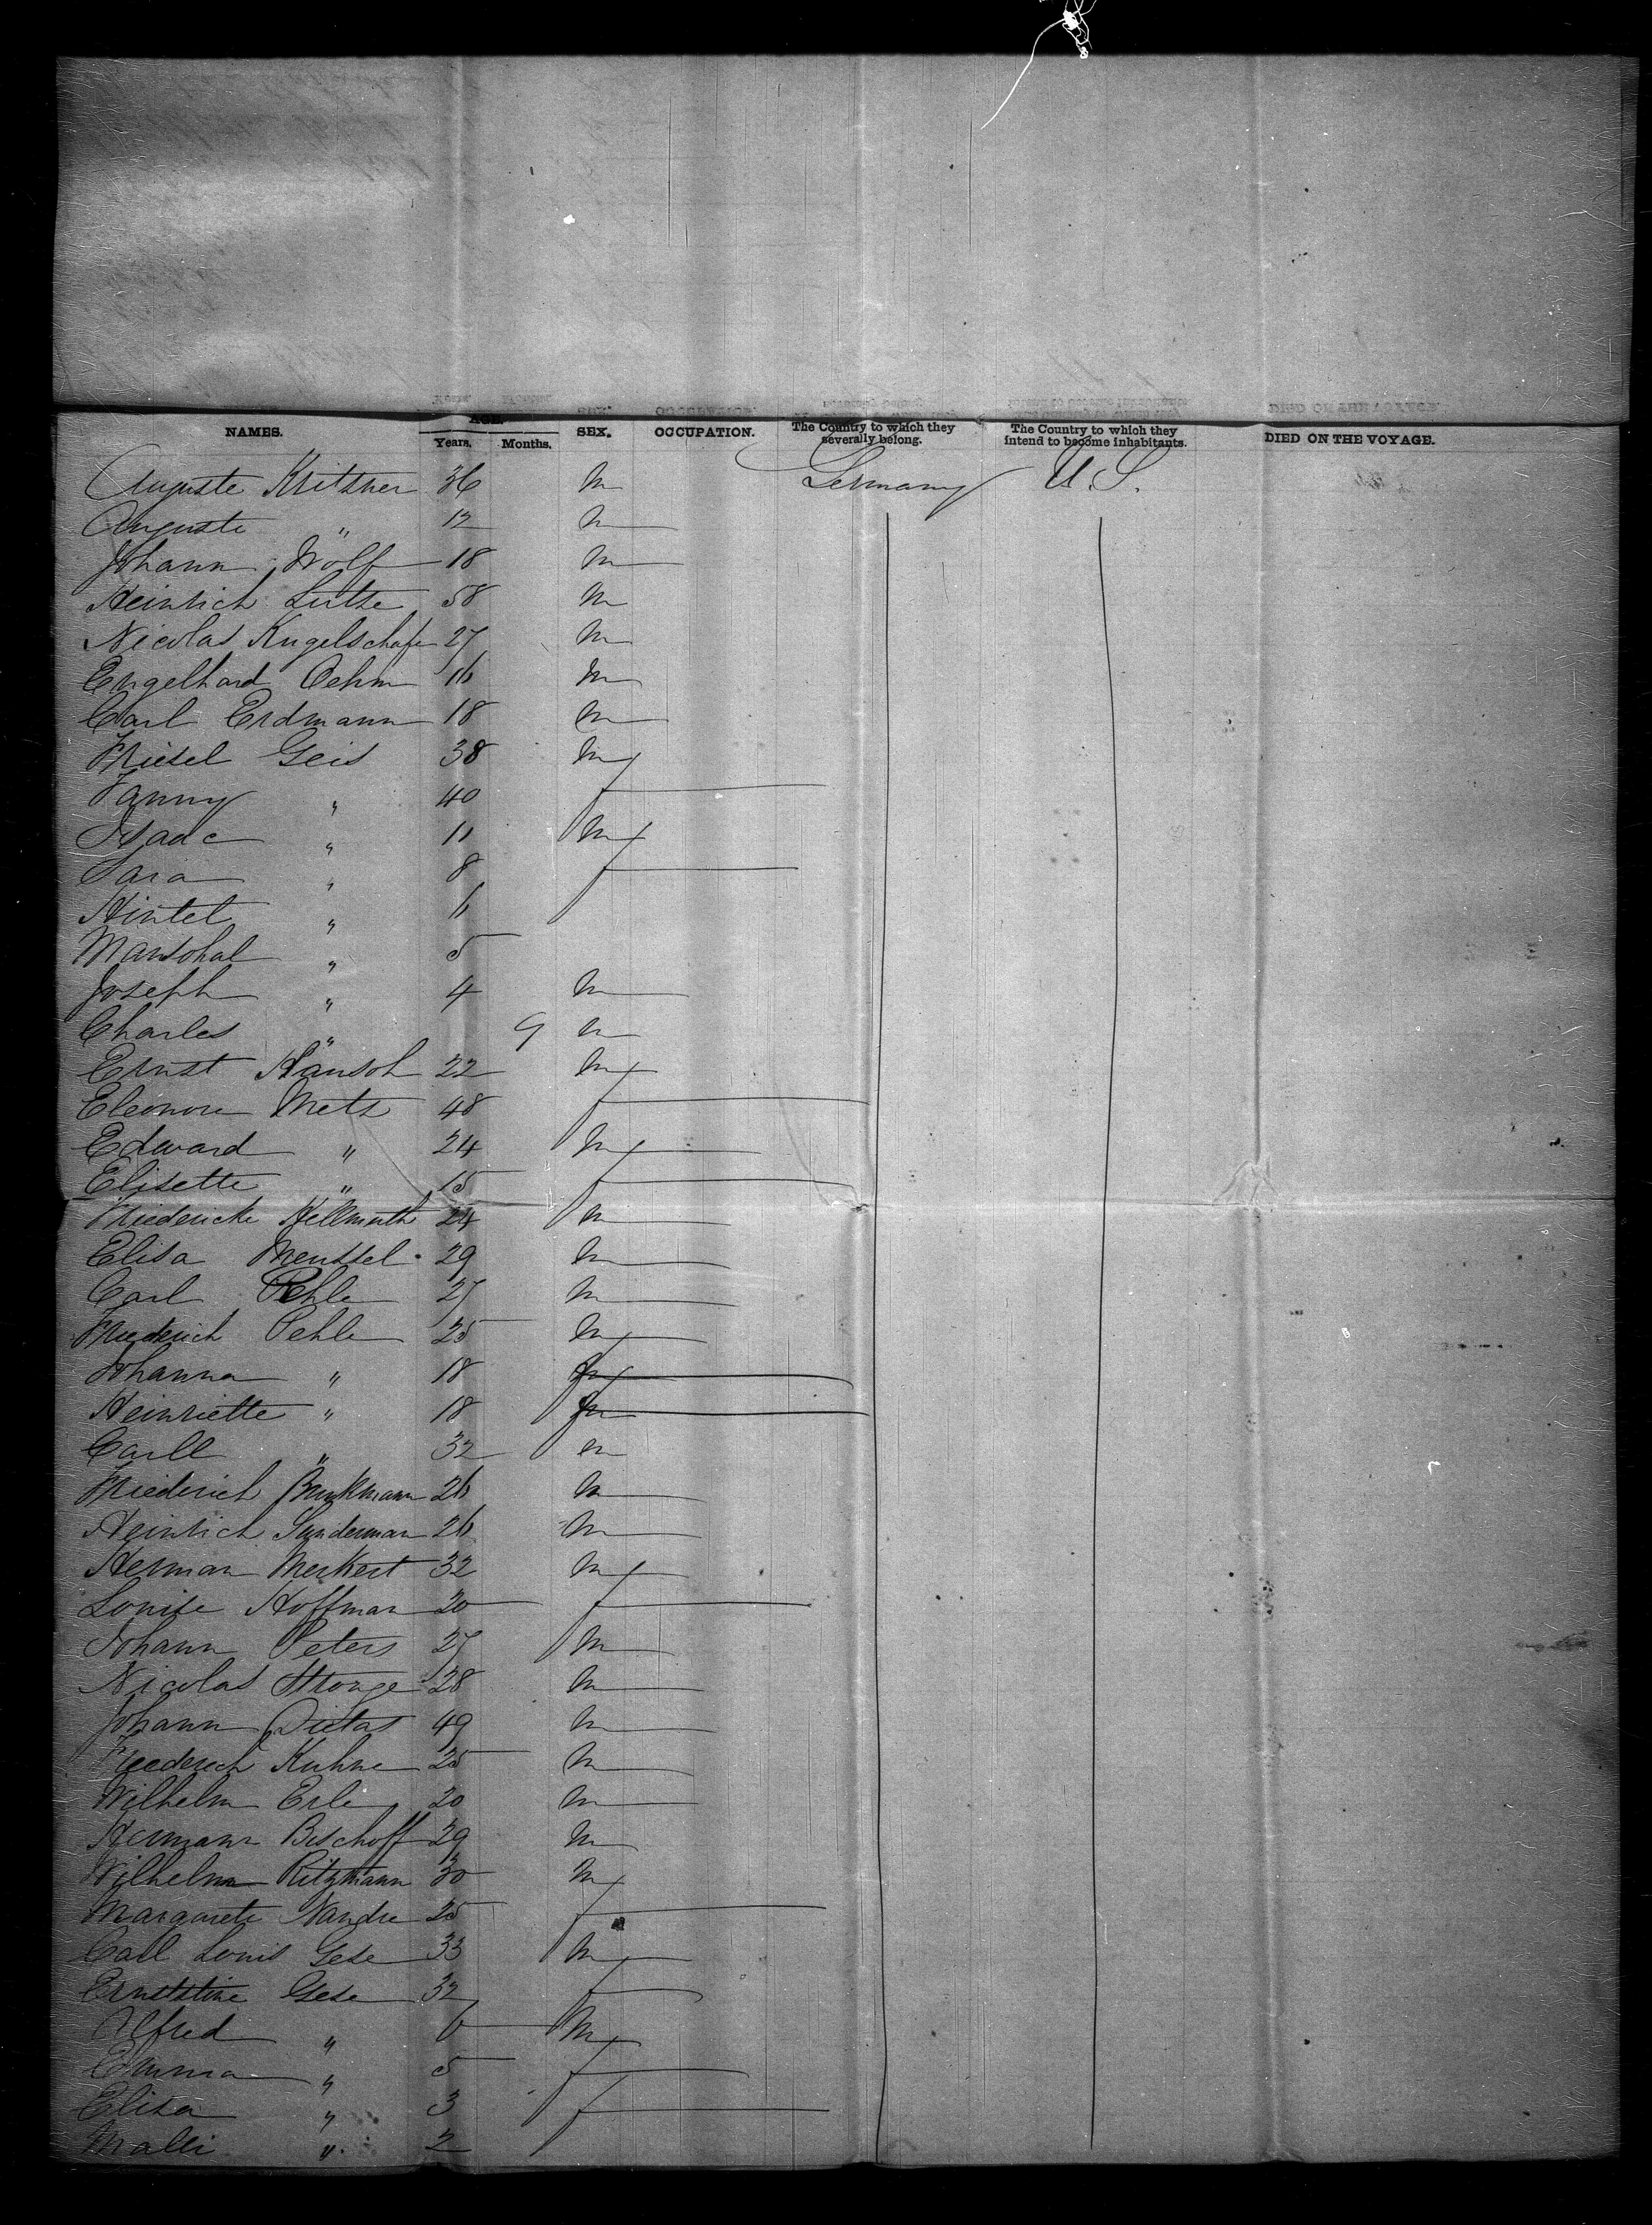 NAMES. AGE. Years. Months. SEX. OCCUPATION. The Country to which they severally belong. The Country to which they intend to become inhabitants. DIED ON THE VOYAGE.
Auguste Kritzner 36 m Germany U.S.
Auguste " 12 m
Johann Wolf 18 m
Heinrich Lutze 58 m
Nicolas Kugelschafe 27 m
Engelhard Oehm 16 m
Carl Erdmann 18 m
Friesel Geis 38 m
Fanny " 40 f
Isaac " 11 m
Sara " 8 f
Hintel " 6
" 5
Joseph " 4 m
Charles " 9 m
Ernst Hansch 22 m
Eleonore Metz 48 f
Edward " 24 m
Elisette " 15 f
Friedericke Hellmuth 24 m
Elisa Menssel 29 m
Carl Pehle 27 m
Friederich Pehle 25 m
Johanna " 18 f
Heinriette " 18 f
Carll " 32 m
Friederich Brinkmann 26 m
Heinrich Sunderman 26 m
Herman Merkert 32 m
Louise Hoffman 20 f
Johann Peters 27 m
Nicolas 28 m
Johann 49 m
Friederich Kuhne 25 m
Wilhelm Erle 20 m
Hermann Bischoff 29 m
Wilhelm Ritzmann 30 m
Margarete Nandre 25 f
Carl Louis Gese 33 m
Ernststine Gese 32 f
Alfred " 6 m
Emma " 5 f
Elisa " 3 f
Malli " 2